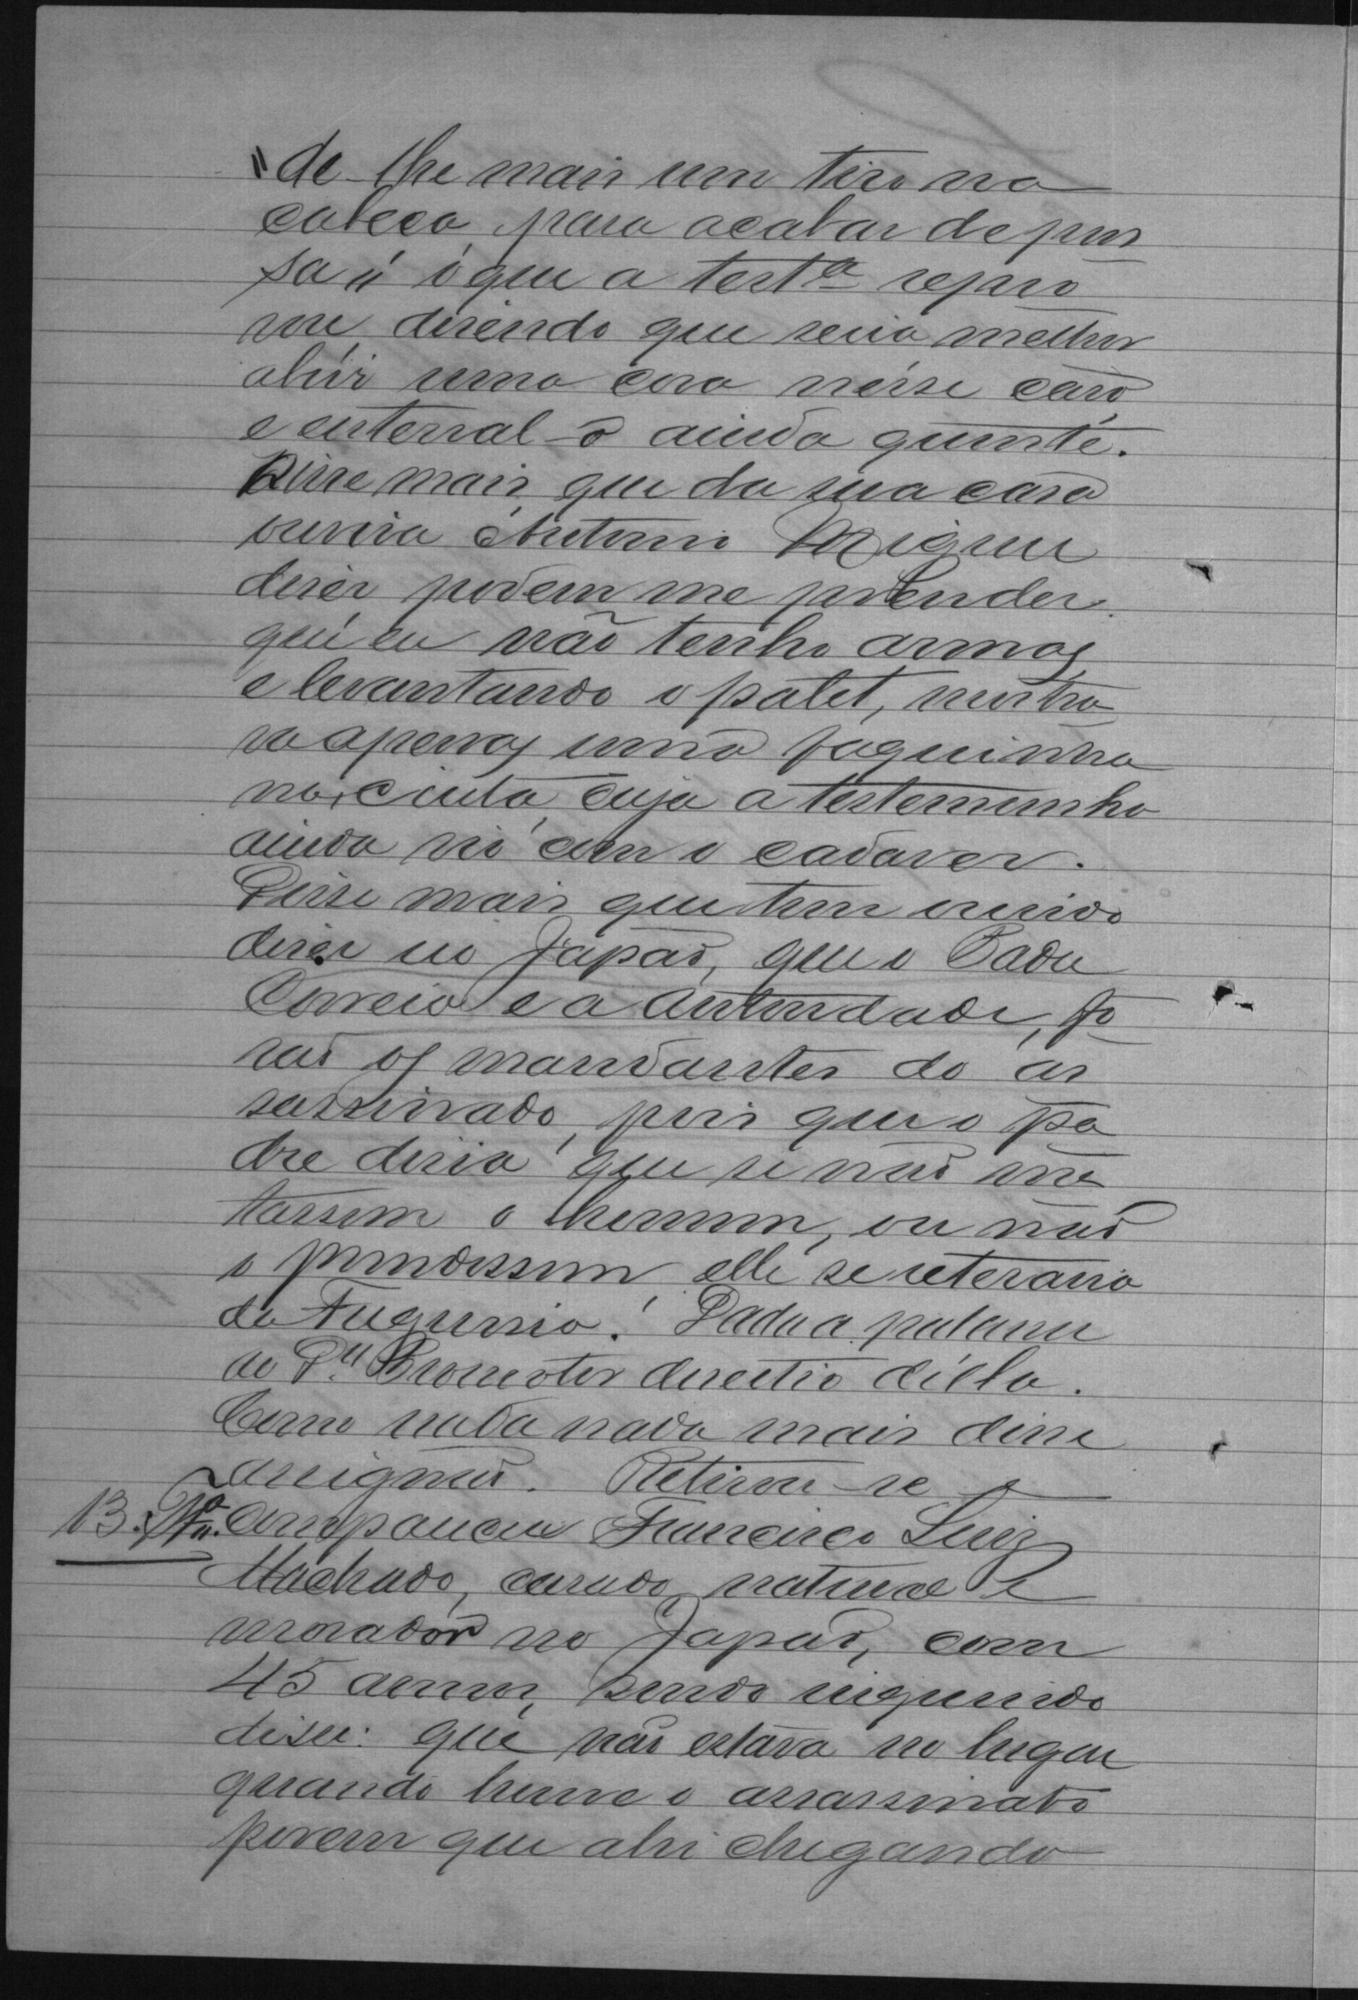 "de-lhe mais um tiro na
cabeça, para acabar de pres
sa" o que a test.ª repro
vou, disendo que seria melhor
abrir uma cova nesse caso
e enterral-o ainda quente.
Disse mais que da sua casa
ouvira Antonio Miguel
diser podem me prender
que eu não tenho armas
e levantando o palet, mostra
va apenas uma faquinha
na cinta, cuja a testemunha
ainda vio com o cadaver.
Disse mais que tem ouvido
diser no Japão, que o Padre
Correia e a autoridade, fo
rão os mandantes do as
sassinado, pois que o pa
dre disia que se não ma
tassem o homem, ou não
o prendessem elle se reteraria
da Freguesia. Dada a palavra
ao Dr. Promotor desestio d'ella.
Como nada nada mais disse
assignou. Retirou-se e
13.ª Tª. compareceu Francisco Luiz
Machado, casado, natural e
morador no Japão, com
45 annos, sendo inquerido
disse: que não estava no lugar
quando houve o assassinato
porem que ahi chegando